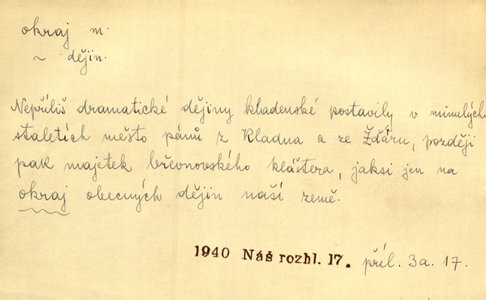 okraj m.
~ dějin.
Nepříliš dramatické dějiny kladenské postavily v minulých
staletích město pánů z Kladna a ze Žďáru, později
pak majetek břevnovského kláštera, jaksi jen na
okraj obecných dějin naší země.
1940 Náš rozhl. 17. příl. 3a. 17.